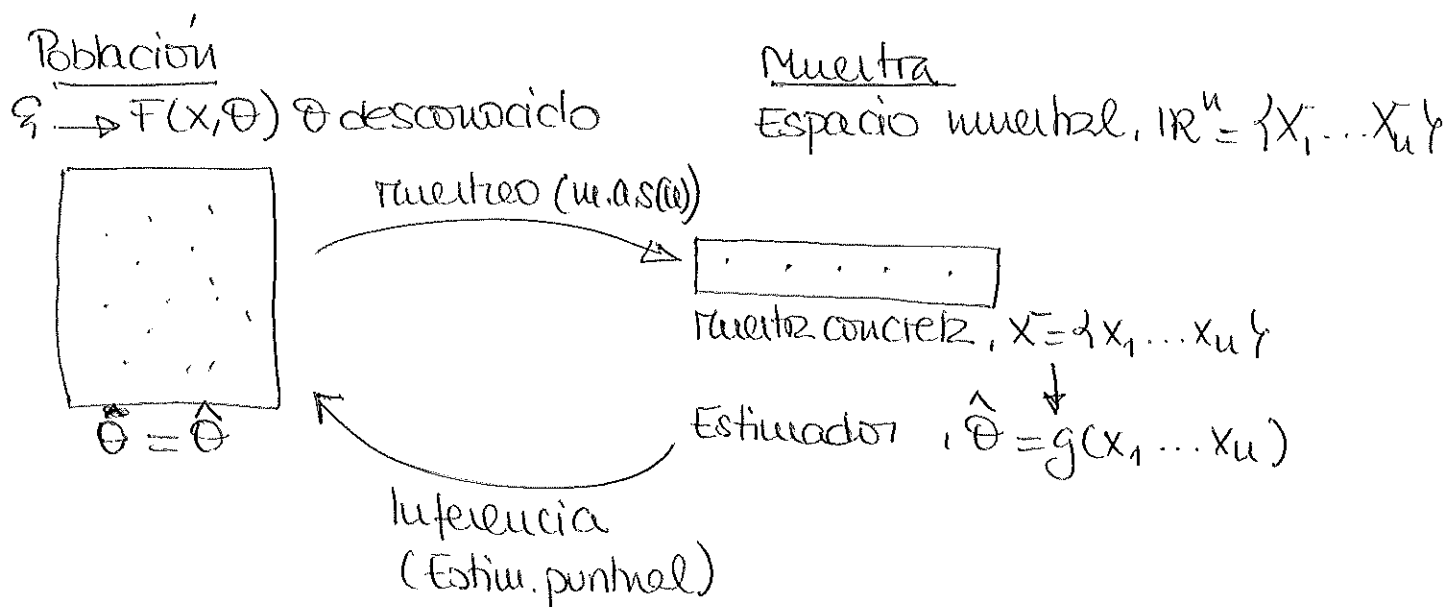 Población
Muestra
ξ → F(x,θ) θ desconocido
Espacio muestral, IR^n = {X₁ ... Xₙ}
muestreo (m.a.s(n))
muestra concreta, X = {x₁ ... xₙ}
Estimador, θ̂ = g(x₁ ... xₙ)
θ̂ = θ̂
Inferencia
(Estim. puntual)